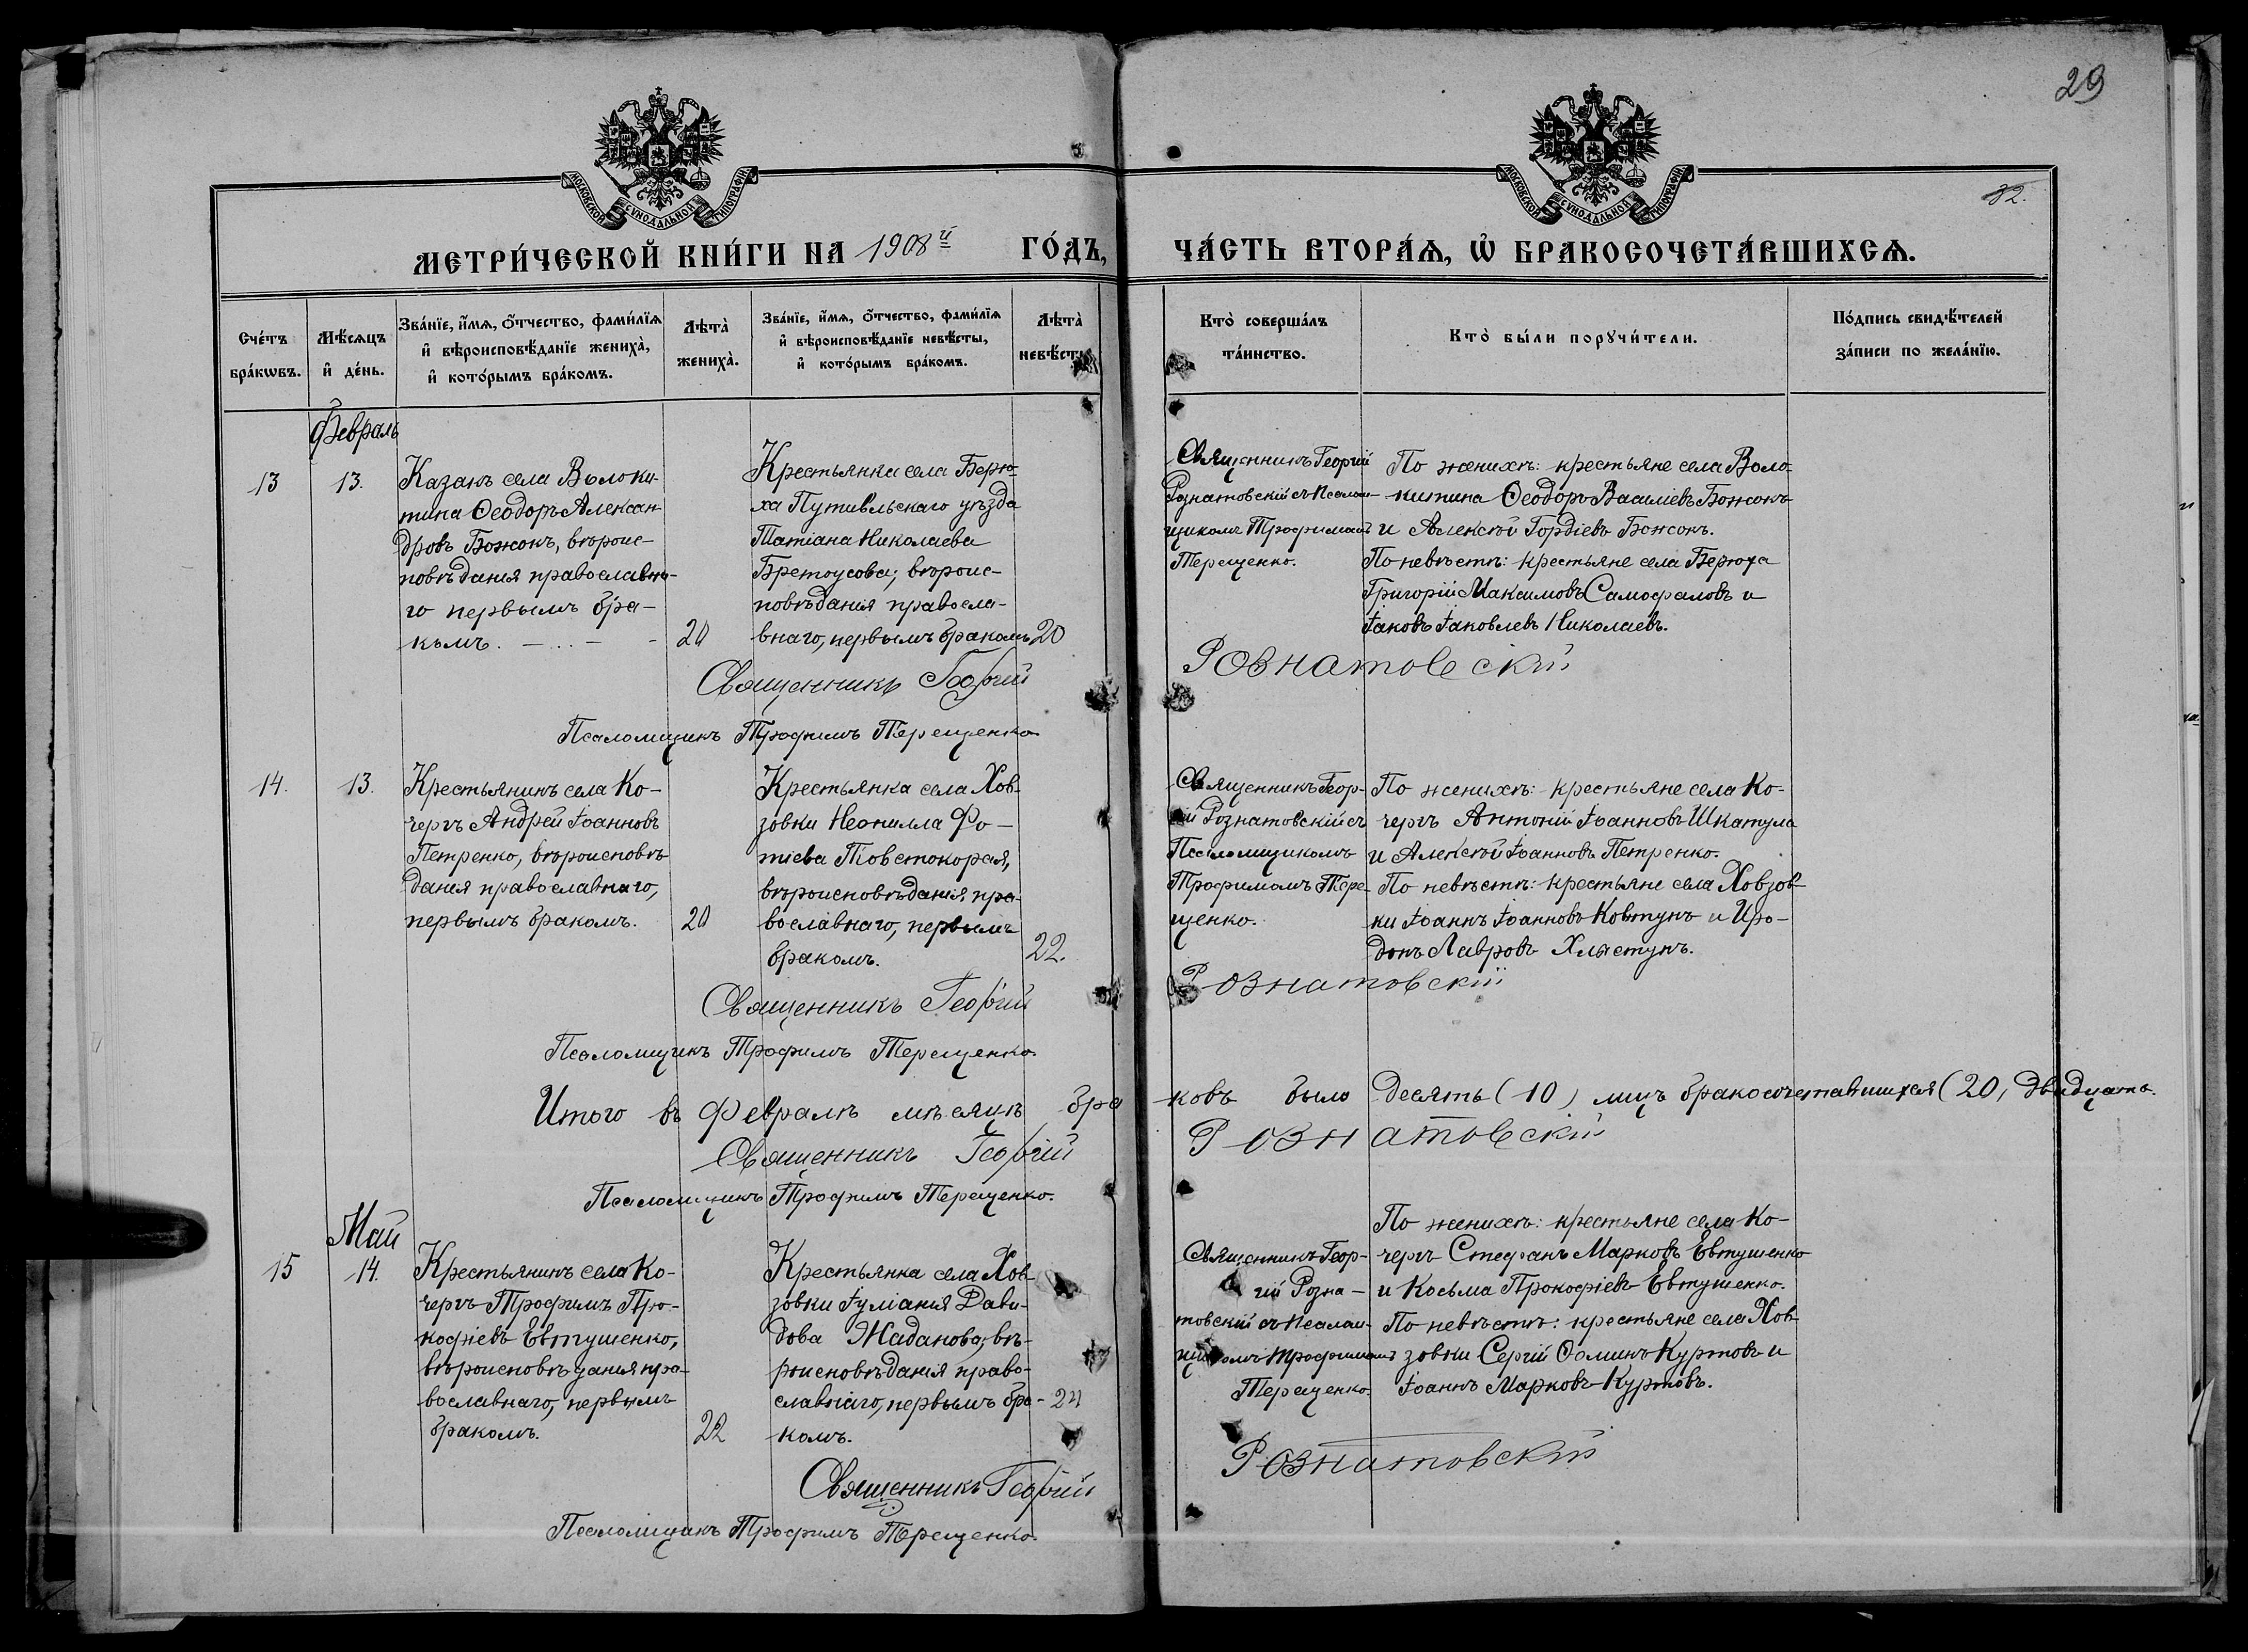 29
МОСКОВСКОЙ СѴНОДАЛЬНОЙ ТИПОГРАФІИ
МОСКОВСКОЙ СѴНОДАЛЬНОЙ ТИПОГРАФІИ
32.
МЕТРИ́ЧЕСКОЙ КНИ́ГИ НА 1908й ГО́ДЪ,
ЧА́СТЬ ВТОРА́Ѧ, Ѡ҆ БРАКОСОЧЕТА́ВШИХСѦ.
Сче́тъ бра́кѡвъ.
Мѣ́сѧцъ и҆ де́нь.
Зва́нїе, и҆́мѧ, ѻ҆́тчество, фами́лїѧ
и҆ вѣроисповѣ́данїе жениха̀,
и҆ кото́рымъ бра́комъ.
Лѣта̀ жениха̀.
Зва́нїе, и҆́мѧ, ѻ҆́тчество, фами́лїѧ
и҆ вѣроисповѣ́данїе невѣ́сты,
и҆ кото́рымъ бра́комъ.
Лѣта̀ невѣ́сты
Кто̀ соверша́лъ
та́инство.
Кто̀ бы́ли порꙋчи́тели.
По́дпись свидѣ́телей
за́писи по жела́нїю.
Февраль
13
13.
Казакъ села Волоки-
тина Ѳеодоръ Алексан
дровъ Божокъ, вѣроис-
повѣданія православна-
го первымъ бра-
комъ. — ... — -
20
Крестьянка села Берю-
ха Путивльскаго уѣзда
Татіана Николаева
Бретоусова, вѣроис-
повѣданія правосла-
внаго, первымъ бракомъ
20
Священникъ Георгій
Рознатовскій съ Псалом-
щикомъ Трофимомъ
Терещенко.
По женихѣ: крестьяне села Воло-
китина Ѳеодоръ Василіевъ Божокъ
и Алексѣй Гордіевъ Божокъ.
По невѣстѣ: крестьяне села Берюха
Григорій Максимовъ Самофаловъ и
Іаковъ Іаковлевъ Николаевъ.
Священникъ Георгій Рознатовскій
Псаломщикъ Трофимъ Терещенко
14.
13.
Крестьянинъ села Ко-
чергъ Андрей Іоанновъ
Петренко, вѣроисповѣ
данія православнаго,
первымъ бракомъ.
20
Крестьянка села Хов-
зовки Неонилла Фо-
тіева Товстокорая,
вѣроисповѣданія пра-
вославнаго, первымъ
бракомъ.
22.
Священникъ Геор-
гій Рознатовскій съ
Псаломщикомъ
Трофимомъ Тере-
щенко.
По женихѣ: крестьяне села Ко-
чергъ Антоній Іоанновъ Шкатула
и Алексѣй Іоанновъ Петренко.
По невѣстѣ: крестьяне села Ховзов-
ки Іоаннъ Іоанновъ Ковтунъ и Иро-
донъ Лавровъ Хлястунъ.
Священникъ Георгій Рознатовскій
Псаломщикъ Трофимъ Терещенко
Итого въ Февралѣ мѣсяцѣ браковъ было десять (10) лицъ бракосочетавшихся (20) двадцать.
Священникъ Георгій Рознатовскій
Псаломщикъ Трофимъ Терещенко.
Май
15
14.
Крестьянинъ села Ко-
чергъ Трофимъ Про-
кофіевъ Евтушенко,
вѣроисповѣданія пра-
вославнаго, первымъ
бракомъ.
22
Крестьянка села Хов-
зовки Іуліанія Дави-
дова Жаданова, вѣ-
роисповѣданія право-
славнаго, первымъ бра-
комъ.
Священникъ Геор-
гій Розна-
товскій съ Псалом-
щикомъ Трофимомъ
Терещенко.
По женихѣ: крестьяне села Ко-
чергъ Стефанъ Марковъ Евтушенко
и Косьма Прокофіевъ Евтушенко.
По невѣстѣ: крестьяне села Хов-
зовки Сергій Ѳоминъ Куртовъ и
Іоаннъ Марковъ Куртовъ.
Священникъ Георгій Рознатовскій
Псаломщикъ Трофимъ Терещенко.